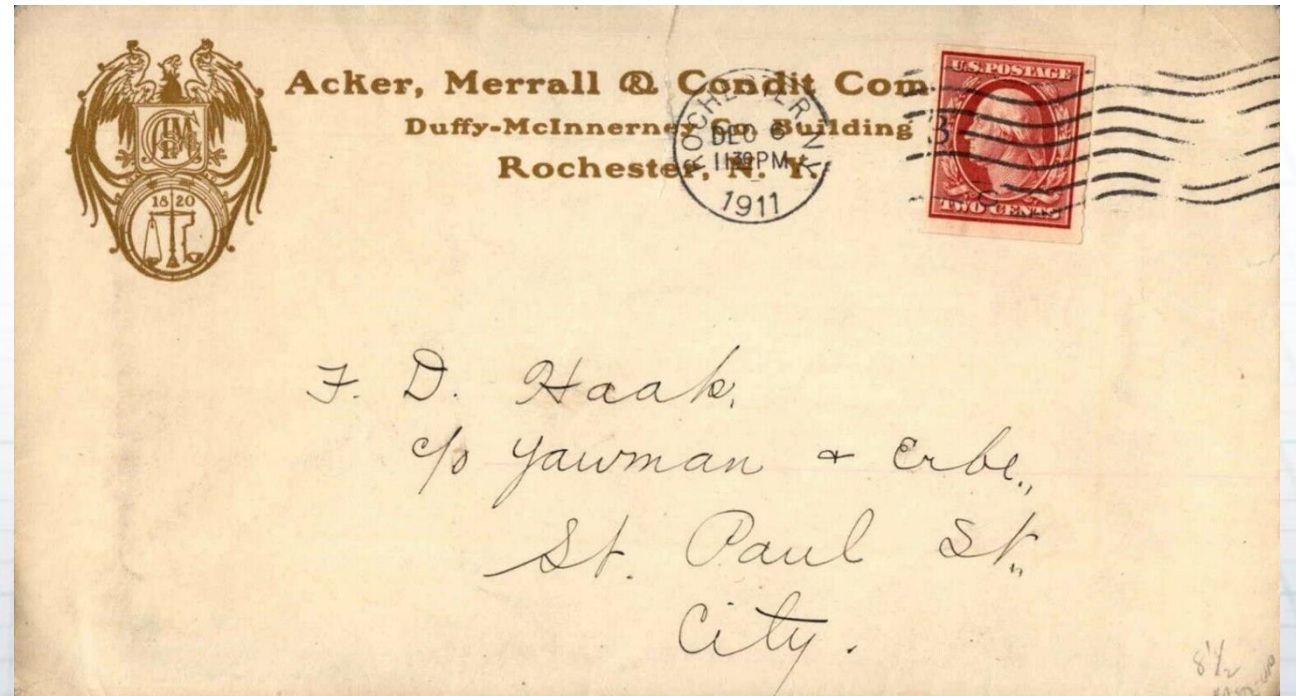 Acker, Merrall & Condit Com
Duffy-McInnerney Co. Building
Rochester, N. Y.
18 20
ROCHESTER, N.Y.
DEC 6
1130 PM
1911
B
C
U.S. POSTAGE
TWO CENTS
F. D. Haak,
c/o Yawman + Erbe.,
St. Paul St.,
City.
8 1/2